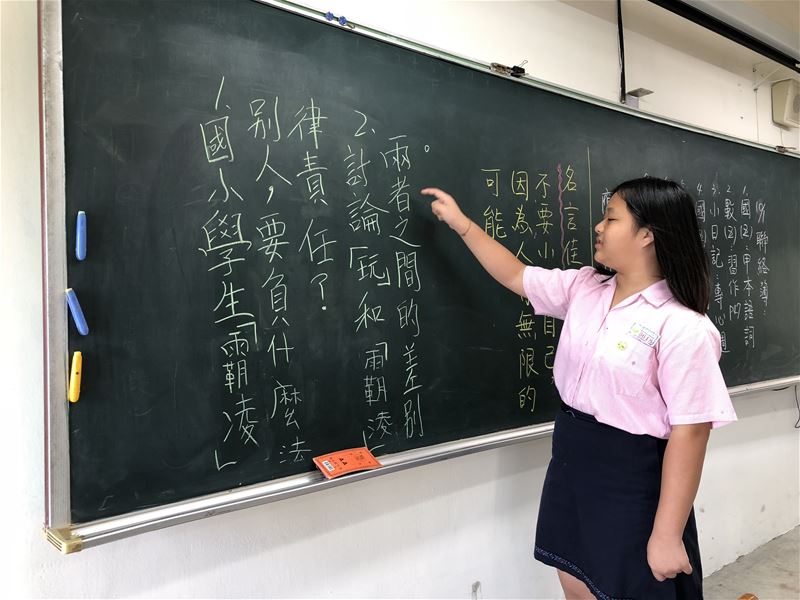 1.國小學生「霸凌」
別人,要負什麼法
律責任?
2.討論「玩」和「霸凌」
兩者之間的差別。
名言佳
不要小 自己,
因為人 無限的
可能
聯絡簿:
1.國(2):甲本語詞
2.數(2):習作
3.小日記:專心週
4.國